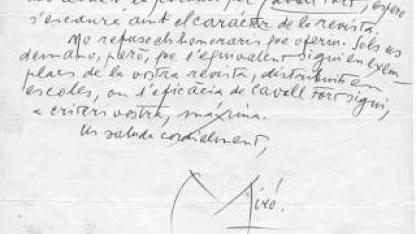 Cavall Fort, espero
s'escaurà amb el caràcter de la revista.
No refuso els honoraris que oferiu. Sols us
demano, però, que l'equivalent sigui en exem-
plars de la vostra revista, distribuïts en
escoles, on l'eficàcia de Cavall Fort sigui,
a criteri vostre, màxima.
Us saluda cordialment,
Miró.